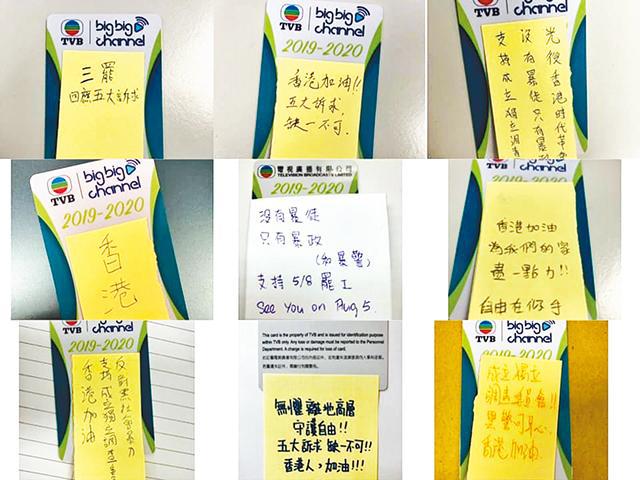 TVB big big channel
2019-2020
三罷
回應五大訴求
TVB big big channel
2019-2020
香港加油!!
五大訴求,
缺一不可.
TVB big big channel
光復香港時代革
沒有暴徒只有暴政
支持成立獨立調查
TVB big big channel
2019-2020
香港
電視廣播有限公司
TELEVISION BROADCASTS LIMITED
2019-2020
沒有暴徒
只有暴政
(和暴警)
支持 5/8 罷工
See you on Aug 5.
TVB big big channel
2019-2020
香港加油
為我們的家
盡一點力!!
自由在你手
TVB big big channel
2019-2020
反對黑社會暴力
支持成立獨立調查委
香港加油
This card is the property of TVB and is issued for identification purpose
within TVB only. Any loss or damage must be reported to the Personnel
Department. A charge is required for loss of card.
無懼離地高層
守護自由!!
五大訴求 缺一不可!!
香港人,加油!!!
TVB big big channel
2019-2020
成立獨立
調查委員會!!
黑警可恥.
香港加油.